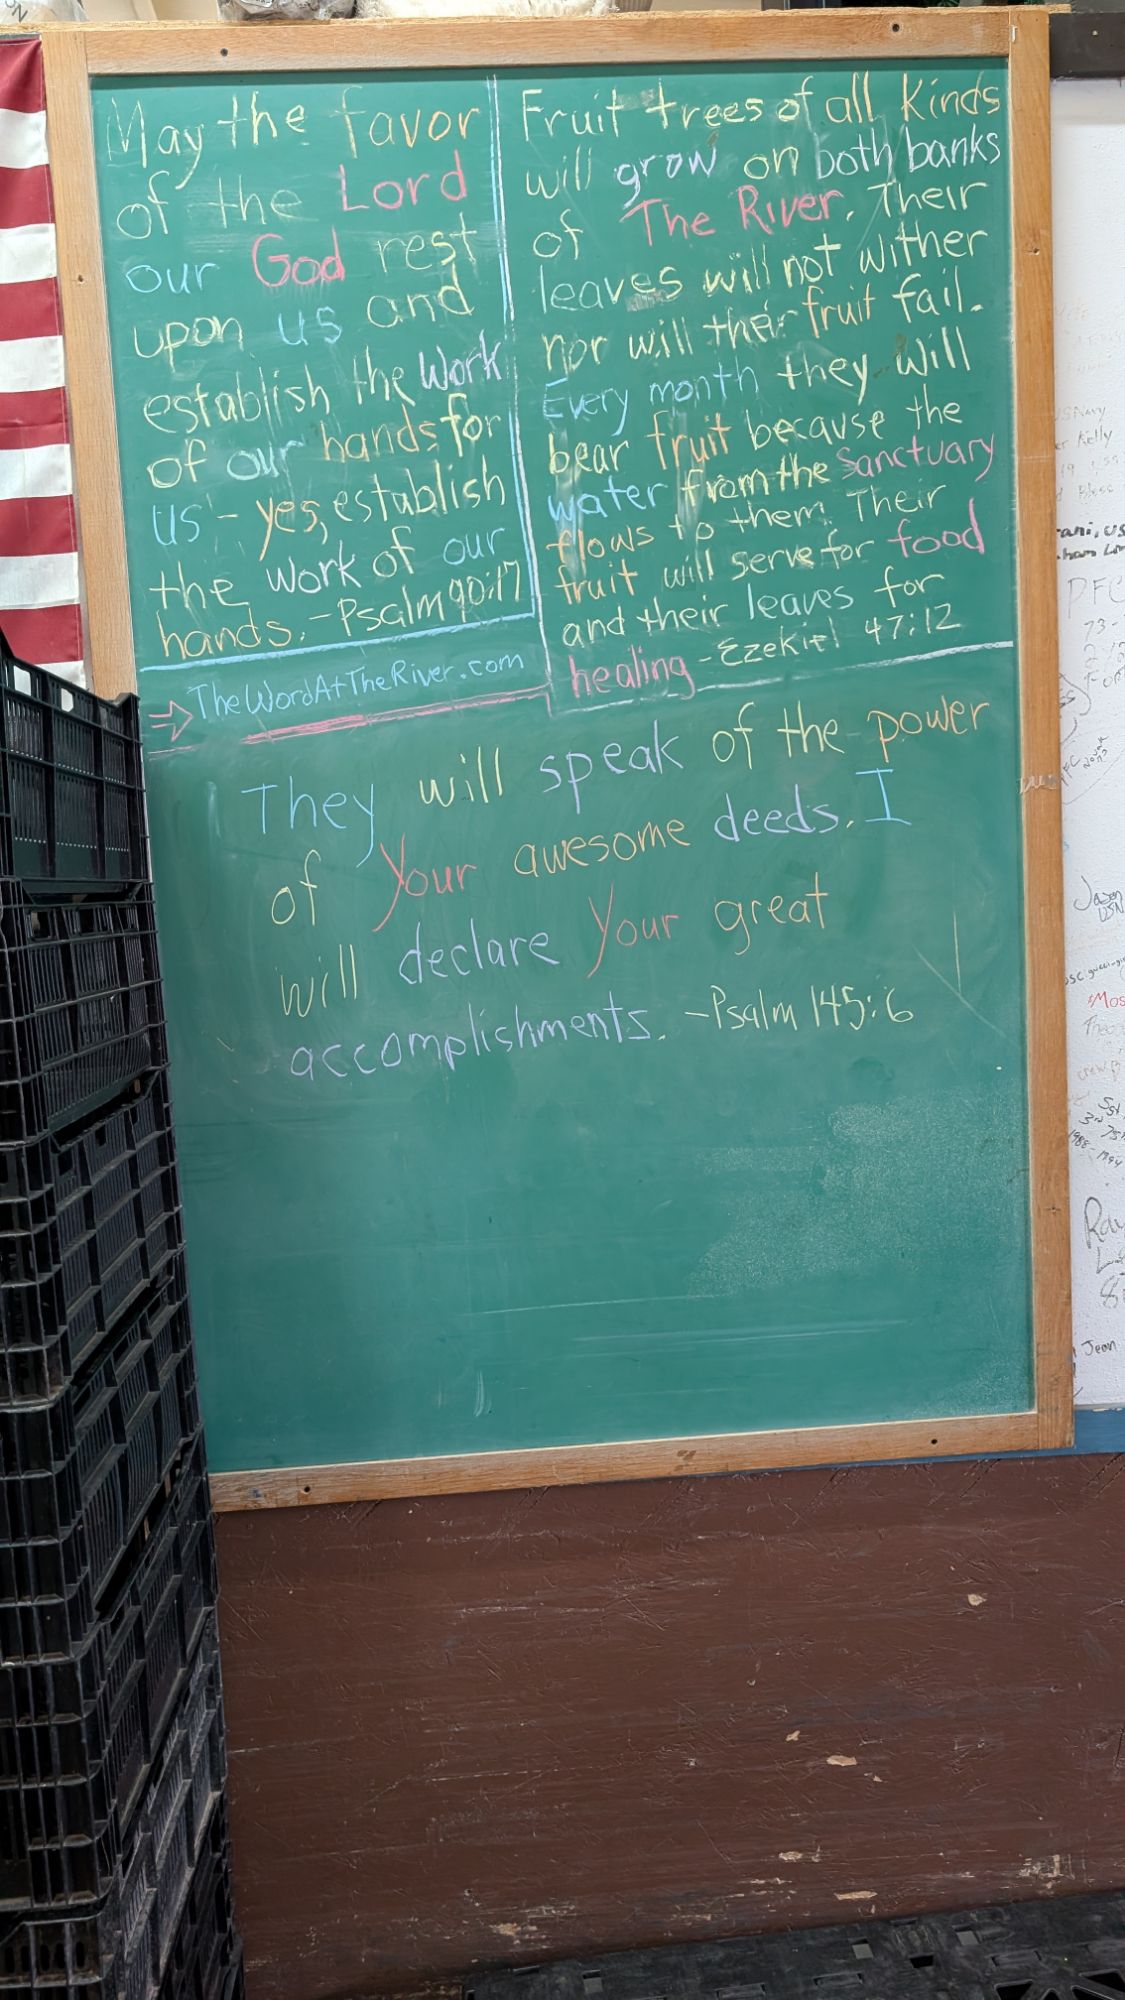 May the favor
of the Lord
our God rest
upon us and
establish the Work
of our hands for
us - yes, establish
the work of our
hands. - Psalm 90:17
→ TheWordAtTheRiver.com
Fruit trees of all Kinds
will grow on both banks
of The River. Their
leaves will not wither
nor will their fruit fail.
Every month they will
bear fruit because the
water from the Sanctuary
flows to them. Their
fruit will serve for food
and their leaves for
healing - Ezekiel 47:12
They will speak of the power
of Your awesome deeds. I
will declare Your great
accomplishments. - Psalm 145:6
Kelly
PFC
Jason
USN
Jean